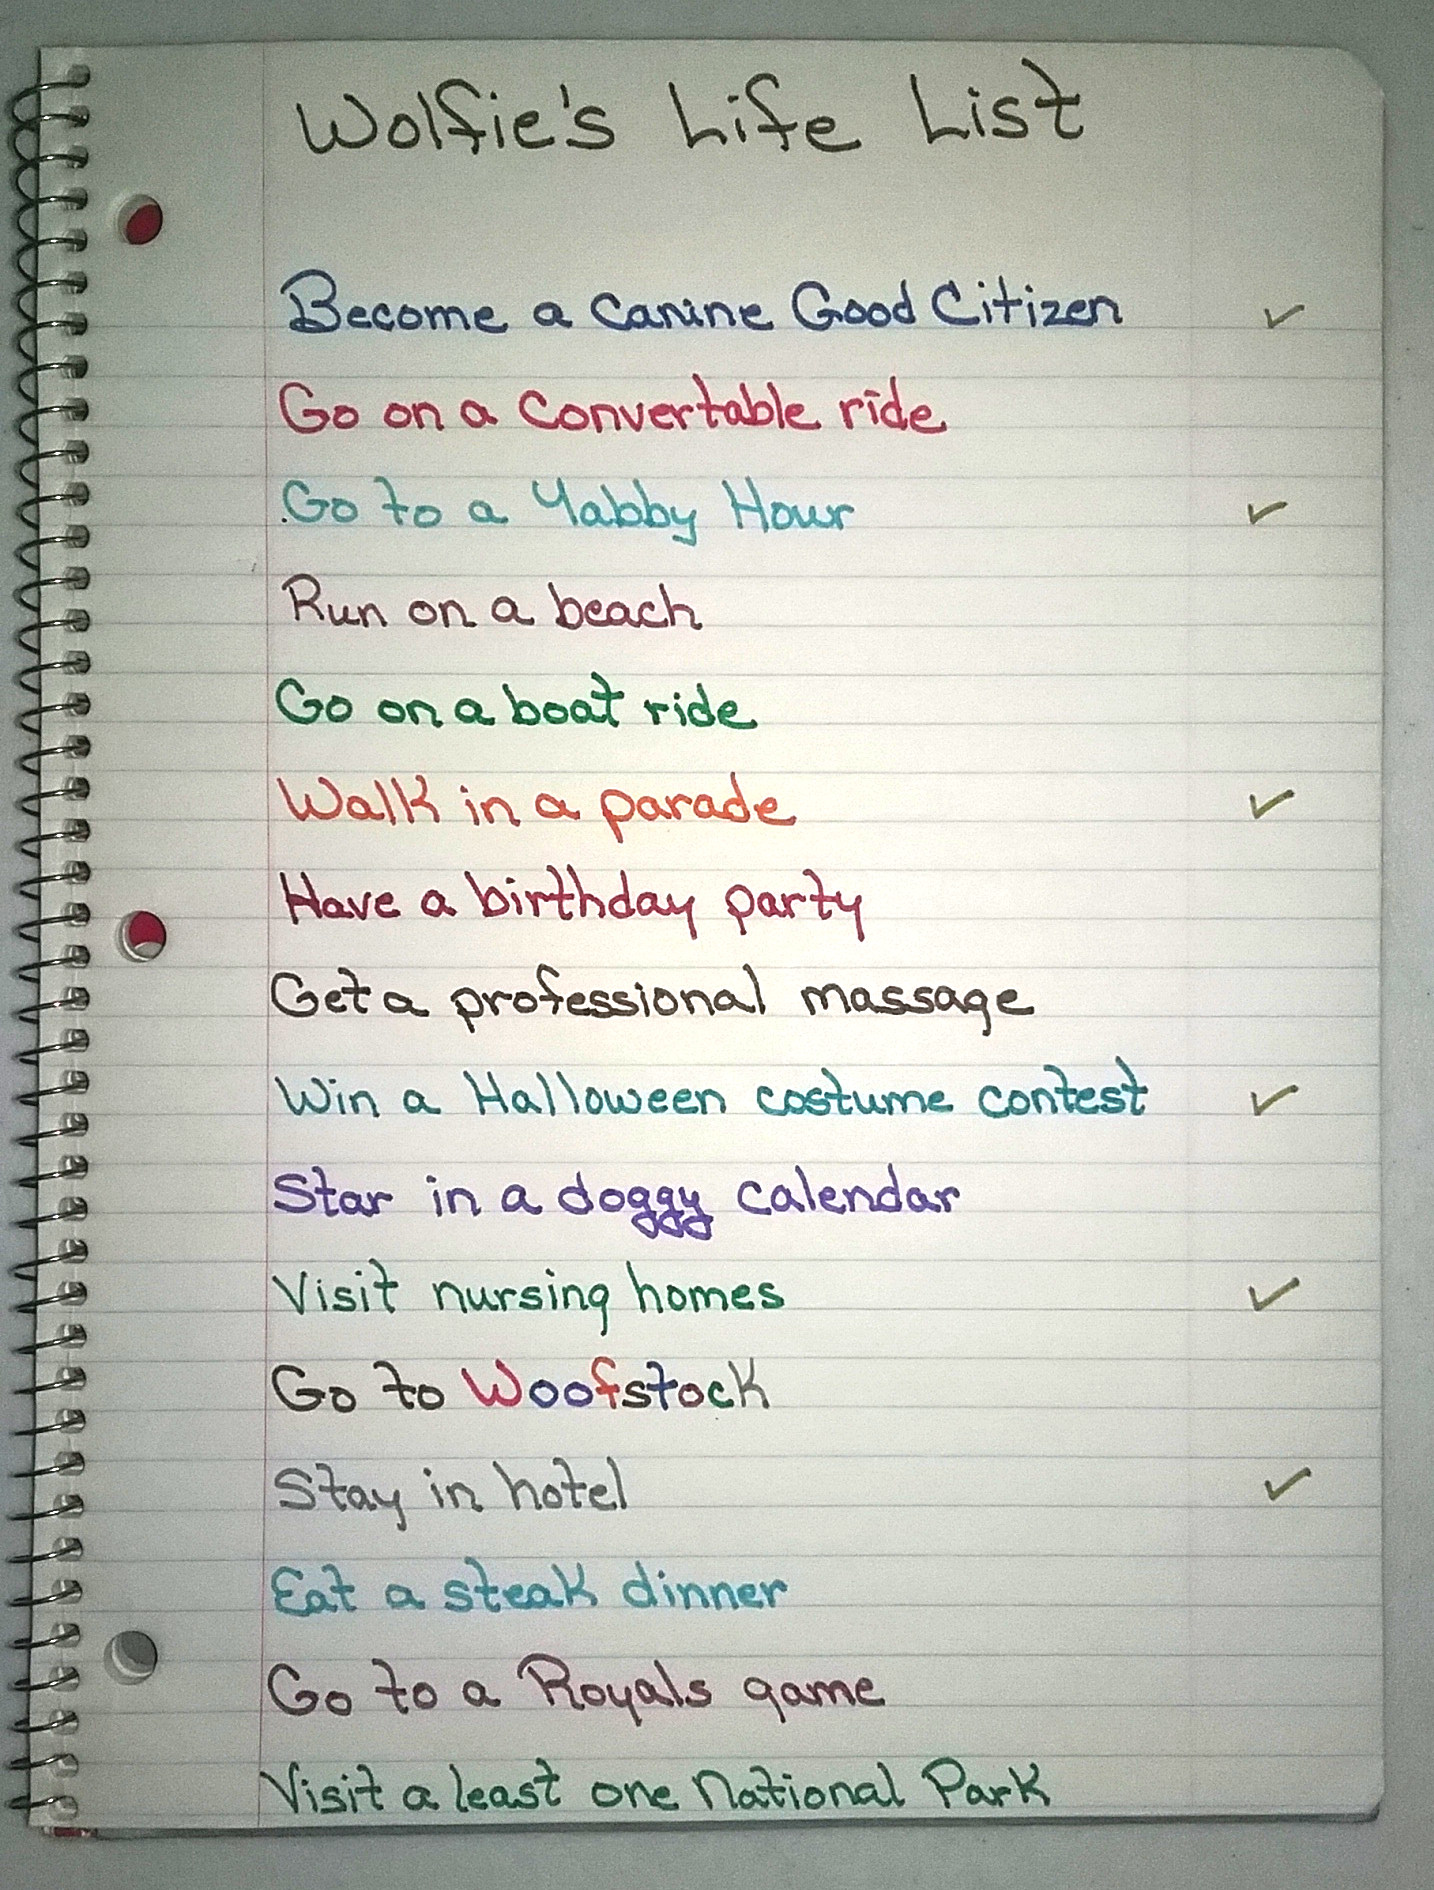 Wolfie's Life List
Become a Canine Good Citizen ✓
Go on a Convertable ride
Go to a Yabby Hour ✓
Run on a beach
Go on a boat ride
Walk in a parade ✓
Have a birthday party
Get a professional massage
Win a Halloween costume contest ✓
Star in a doggy calendar
Visit nursing homes ✓
Go to Woofstock
Stay in hotel ✓
Eat a steak dinner
Go to a Royals game
Visit a least one National Park